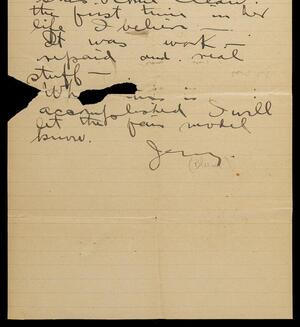 the first time in her
life I believe —
It was work —
repaid and real
stuff —
is
accomplished I will
let the fair model
know.
Jerry